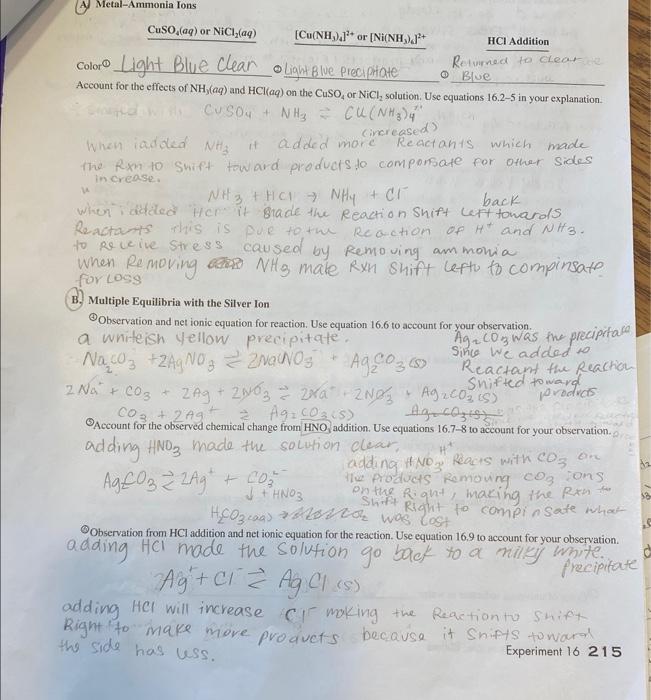 A Metal-Ammonia Ions
CuSO₄(aq) or NiCl₂(aq) [Cu(NH₃)₄]²⁺ or [Ni(NH₃)₆]²⁺ HCl Addition
Color① Light Blue Clear ② Light Blue Precipitate ③ Returned to clear Blue
Account for the effects of NH₃(aq) and HCl(aq) on the CuSO₄ or NiCl₂ solution. Use equations 16.2–5 in your explanation.
CuSO₄ + NH₃ ⇌ Cu(NH₃)₄²⁺
(increased)
When i added NH₃ it added more Reactants which made
the Rxn to Shift toward products to compensate for other sides
increase.
NH₃ + HCl → NH₄ + Cl⁻
back
when i added HCl it made the Reaction Shift Left towards
Reactants this is Due to the Reaction of H⁺ and NH₃.
to Releive Stress caused by Removing ammonia
when Removing NH₃ make Rxn Shift left to compinsate
for Loss
B. Multiple Equilibria with the Silver Ion
④Observation and net ionic equation for reaction. Use equation 16.6 to account for your observation.
a whiteish yellow precipitate.
Ag₂CO₃ was the precipitate
Since we added
Reactant the Reaction
Shifted toward
products
Na₂CO₃ + 2AgNO₃ ⇌ 2NaNO₃ + Ag₂CO₃(s)
2Na⁺ + CO₃ + 2Ag + 2NO₃ ⇌ 2Na⁺ 2NO₃ + Ag₂CO₃(s)
CO₃ + 2Ag⁺ ⇌ Ag₂CO₃(s)
⑤Account for the observed chemical change from HNO₃ addition. Use equations 16.7–8 to account for your observation.
adding HNO₃ made the solution clear.
H⁺
adding HNO₃ Reacts with CO₃ on
the Products Removing CO₃ ions
on the Right, making the Rxn to
Shift Right to compinsate what
was lost
Ag₂CO₃ ⇌ 2Ag⁺ + CO₃²⁻
↓ + HNO₃
H₂CO₃(aq)
⑥Observation from HCl addition and net ionic equation for the reaction. Use equation 16.9 to account for your observation.
adding HCl made the Solution go back to a milky white.
precipitate
Ag⁺ + Cl⁻ ⇌ AgCl(s)
adding HCl will increase Cl⁻ making the Reaction to Shift
Right to make more products because it Shifts toward
the side has less.
Experiment 16 215